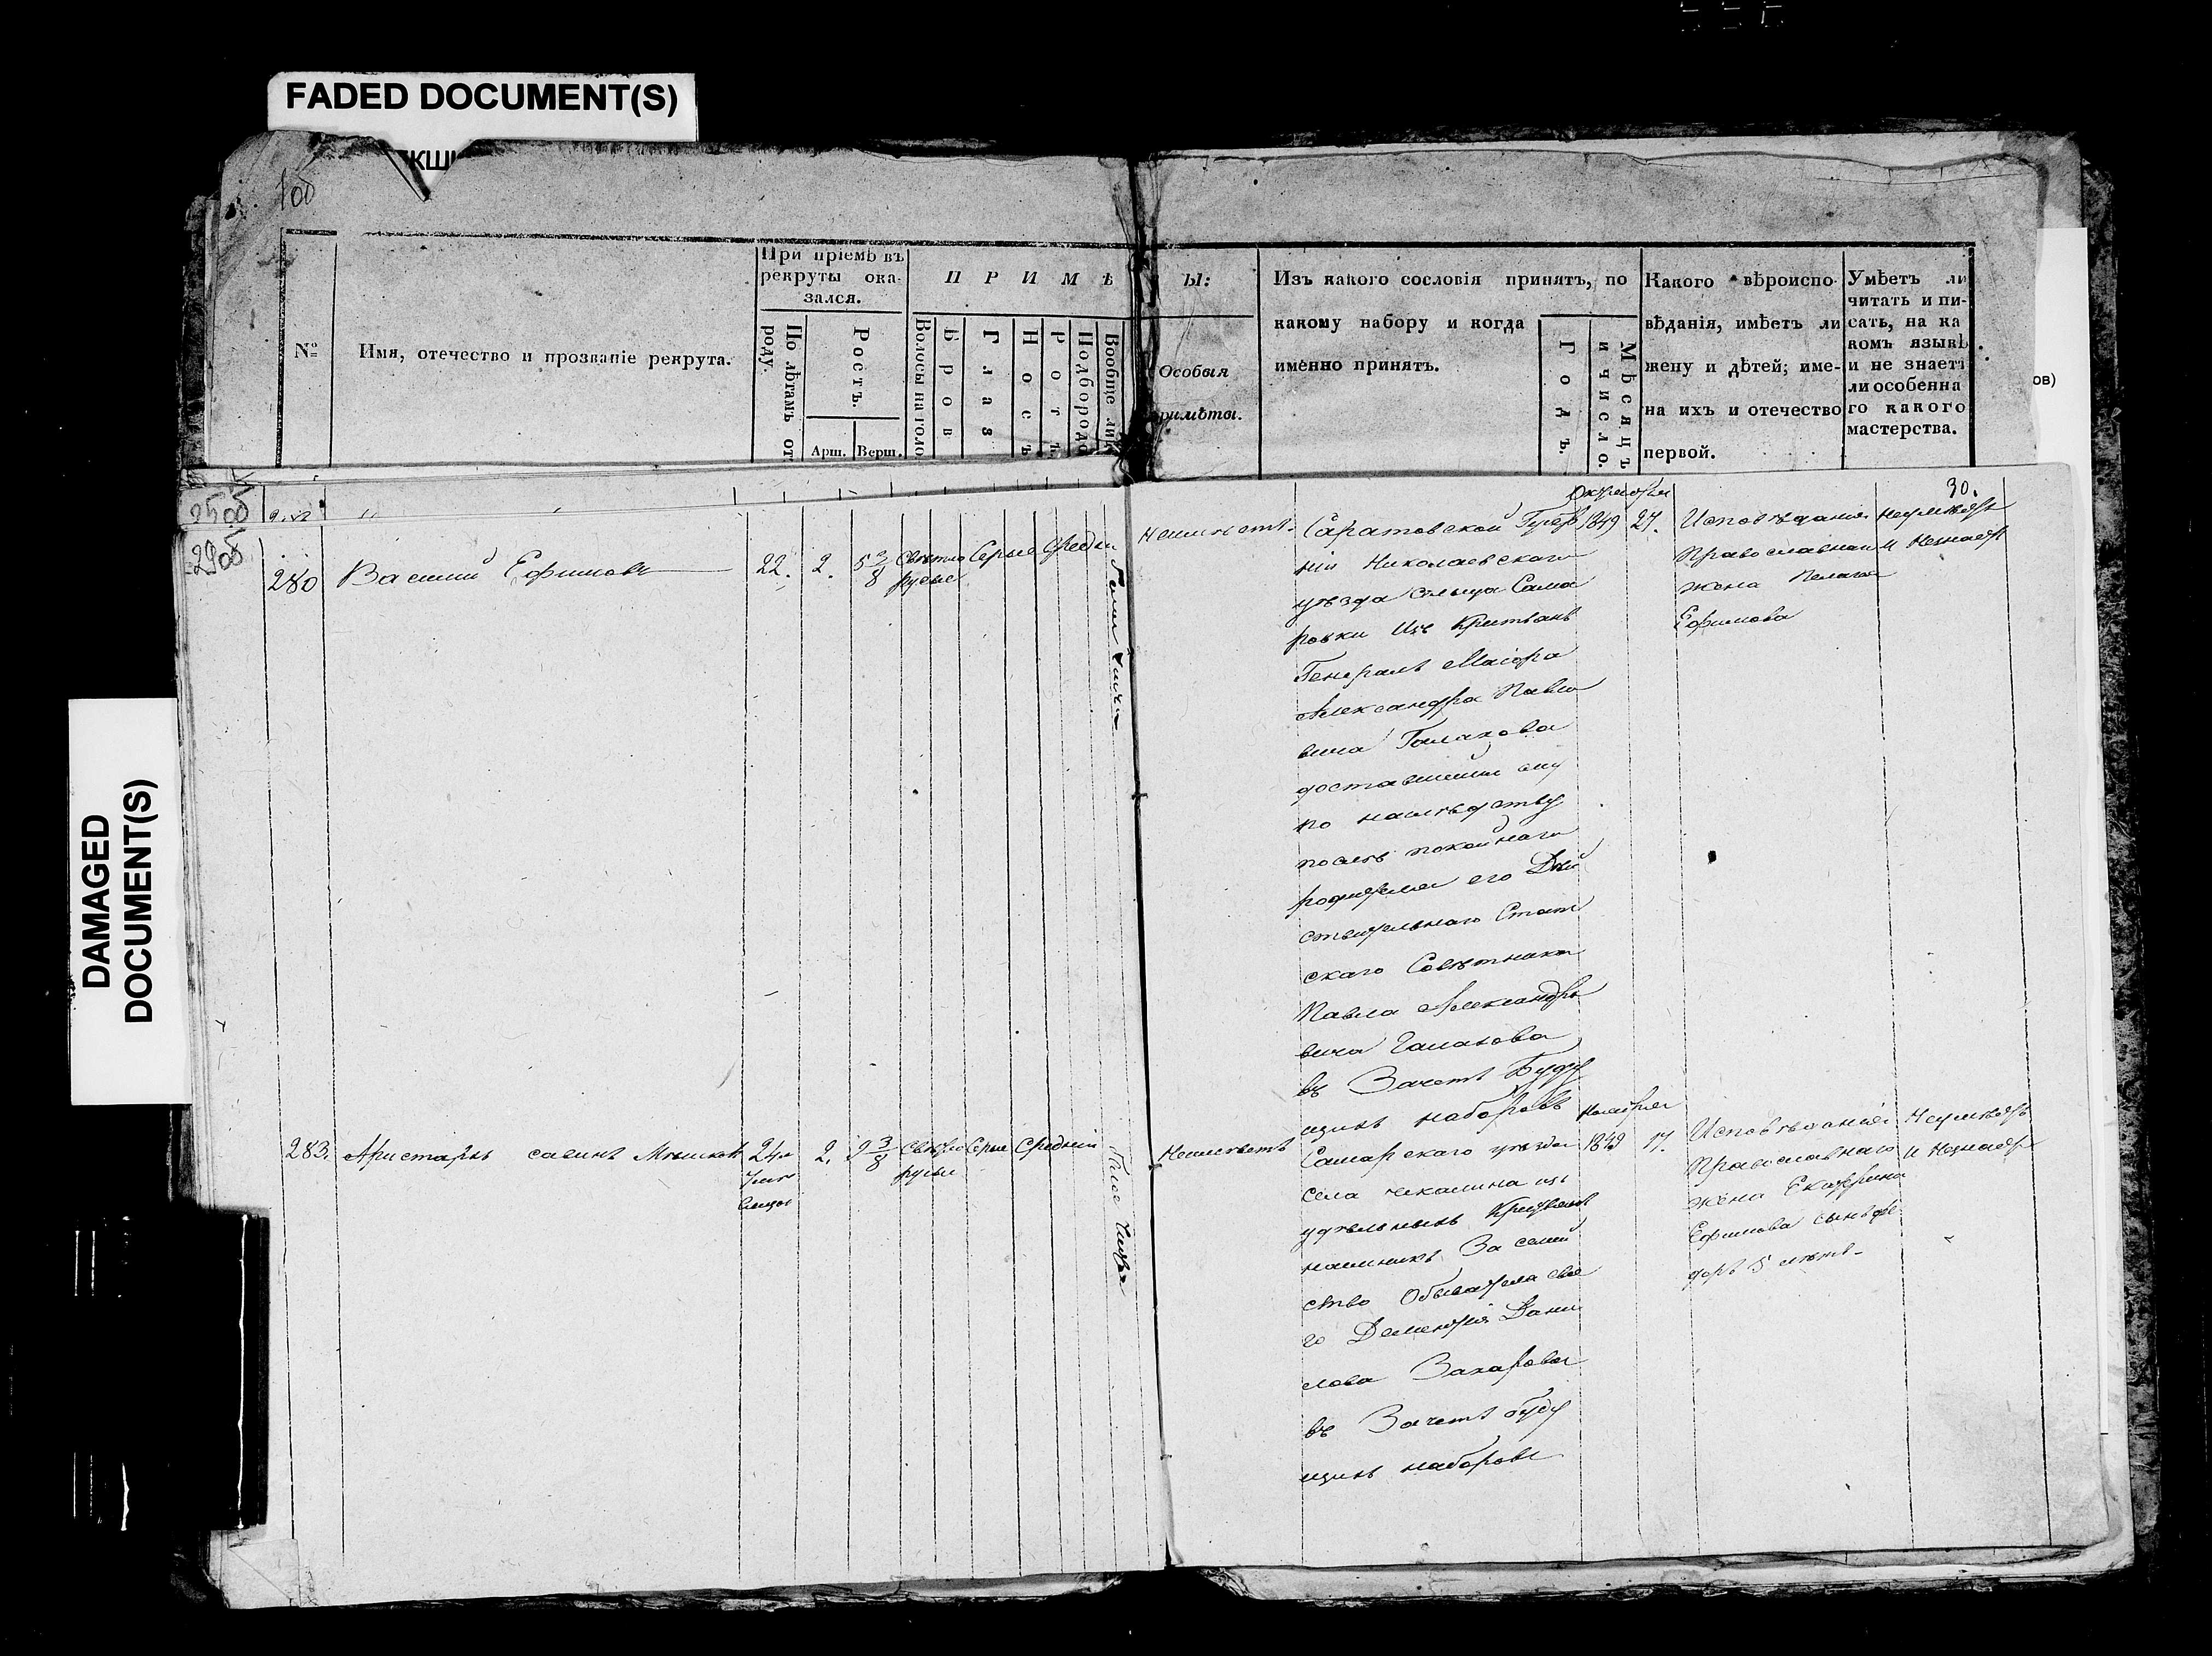 FADED DOCUMENT(S)
DAMAGED
DOCUMENT(S)
КШ
ов)
100
№
Имя, отечество и прозваніе рекрута.
При пріемѣ въ
рекруты ока-
зался.
По лѣтамъ отъ
роду.
Ростъ.
Арш.
Верш.
ПРИМѢ
Волосы на голо
Бров
Глаз
Носъ
Ротъ
Подбородо
Вообще лиц
Ы:
Особыя
римѣты.
Изъ какого сословія принятъ, по
какому набору и когда
именно принятъ.
Годъ.
Мѣсяцъ
и число.
Какого вѣроиспо-
вѣданія, имѣетъ ли
жену и дѣтей; име-
на ихъ и отечество
первой.
Умѣетъ ли
читать и пи-
сать, на ка
комъ языкѣ
и не знаетъ
ли особенна
го какого
мастерства.
30.
2905
280
Василий Ефимовъ
22.
2.
5 3/8
Свѣтло
русые
Серые
Средні
Лице чисто
Неимѣетъ.
Саратовской Губер
ніи Николаевскаго
уѣзда сельца Сама
ровки Изъ Крестьянъ
Генералъ Маіора
Александра Павло
вича Галахова
доставшейся ему
по наслѣдству
послѣ покойнаго
родителя его Дѣй
ствительнаго Стат
скаго Совѣтника
Павла Александро
вича Галахова
въ Зачетъ Буду
щихъ наборовъ
Октября
1849
27.
Исповѣданія
Православнаго
жена Пелагея
Ефимова
Неумѣетъ
и Незнаетъ
283.
Аристархъ савинъ Мѣшков
24
2.
3/8
Свѣтло
русые
Серые
Средній
Лице чисто
Неимѣетъ
Самарскаго уѣзда
села чекалина изъ
удѣльныхъ Крестьянъ
наемникъ За семей
ство Обывателя сво
го Дементія Дани
лова Захарова
въ Зачетъ буду
щихъ наборовъ
Ноября
1849
17.
Исповѣданія
Православнаго
жена Екатерина
Ефимова сынъ Фе
доръ 5 лѣтъ
Неумѣетъ
и Незнаетъ